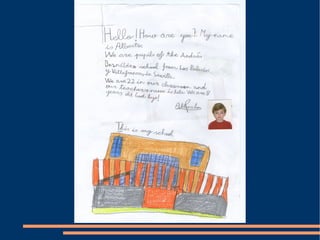 Hello! How are you? My name
is Alberto
We are pupils of the Andrés
Bernáldez school from Los Palacios
y Villafranca in Seville.
We are 22 in our classroom and
our teacher name is Loli. We are 8
years old. bye!
Alberto
This is my school